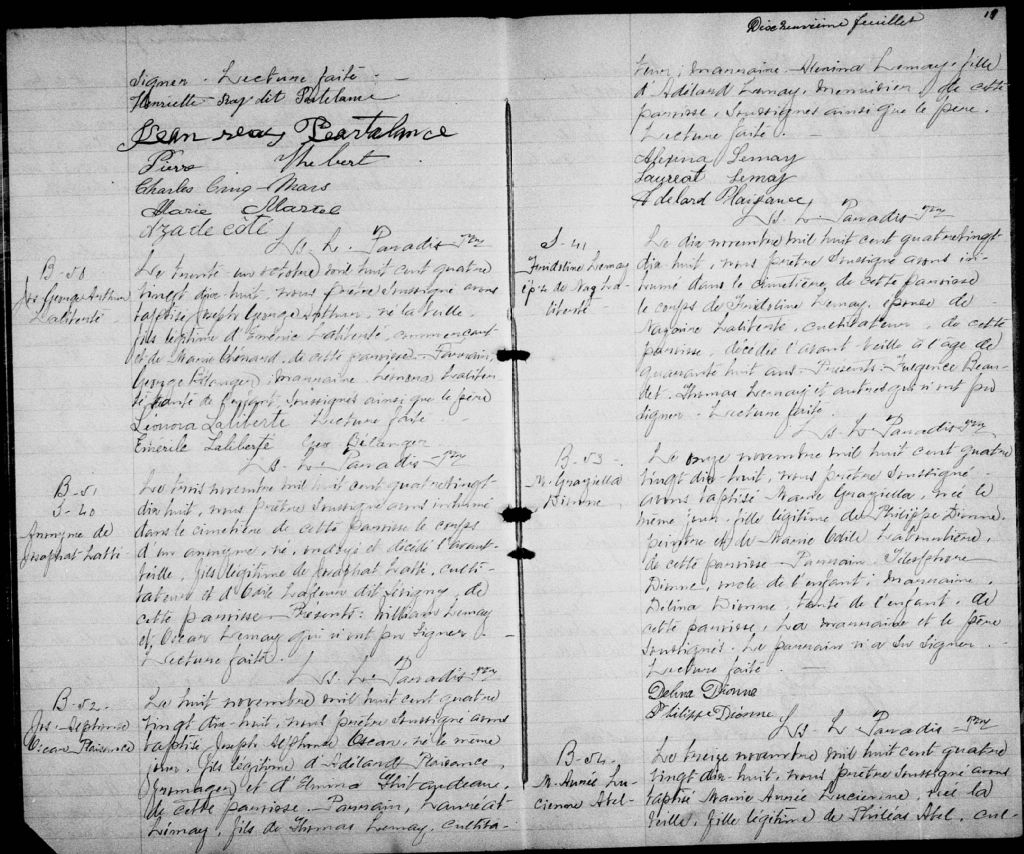 signer. Lecture faite. —
Henriette Roy dit Portelance
Jean Roy Portalance
Pierre Thebert
Charles Cinq-Mars
Marie Martel
Azade côté
Ls. L. Paradis Ptre
B-50
Jos George Arthur
Laliberté
Le trente un octobre mil huit cent quatre
vingt dix-huit, nous prêtre soussigné avons
baptisé Joseph George Arthur, né la veille,
fils légitime d'Emeric Laliberté, commerçant
et de Marie Ménard, de cette paroisse. Parrain,
George Bélanger, marraine, Léonora Laliber
té, tante de l'enfant, soussignés ainsi que le père
Léonora Laliberté Lecture faite
Emérile Laliberté Geo Bélanger
Ls. L. Paradis Ptre
B-51
S-40
Anonyme de
Josaphat Latti-
Le trois novembre mil huit cent quatre vingt
dix huit, nous prêtre soussigné avons inhumé
dans le cimetière de cette paroisse le corps
d'un anonyme, né, ondoyé et décédé l'avant-
veille, fils légitime de Josaphat Latti, culti-
vateur et d'Odile dit Sévigny, de
cette paroisse. Présents: William Lemay
et Oscar Lemay qui n'ont pu signer.
Lecture faite.
Ls. L. Paradis Ptre
B-52-
Jos. Alphonse
Oscar Plaisance
Le huit novembre mil huit cent quatre
vingt dix-huit, nous prêtre soussigné avons
baptisé Joseph Alphonse Oscar, né le même
jour, fils légitime d'Adélard Plaisance,
fromager et d'Emma
de cette paroisse. Parrain, Lauréat
Lemay, fils de Thomas Lemay, cultiva-
Dixneuvième feuillet
19
teur; marraine. Alexina Lemay, fille
d'Adélard Lemay, menuisier, de cette
paroisse, soussignés ainsi que le père.
Lecture faite. —
Alexina Lemay
Laureat Lemay
Adelard Plaisance
Ls. L. Paradis Ptre
S-41
Lemay
épse de Naz La-
liberté
Le dix novembre mil huit cent quatre vingt
dix-huit, nous prêtre soussigné avons in-
humé dans le cimetière de cette paroisse
le corps de Lemay, épouse de
Nazaire Laliberté, cultivateur, de cette
paroisse, décédée l'avant veille à l'age de
quarante huit ans. Présents: Fulgence Beau-
det, Thomas Lemay et autres qui n'ont pu
signer. Lecture faite.
Ls. L. Paradis Ptre
B-53-
M. Graziella
Dionne
Le onze novembre mil huit cent quatre
vingt dix-huit, nous prêtre soussigné
avons baptisé Marie Graziella, née le
même jour, fille légitime de Philippe Dionne,
peintre et de Marie Odile
de cette paroisse. Parrain. Télesphore
Dionne, oncle de l'enfant; marraine.
Délina Dionne, tante de l'enfant, de
cette paroisse, La marraine et le père
soussignés. Le parrain n'a su signer.
Lecture faite. —
Delina Dionne
Philippe Dionne
Ls. L. Paradis Ptre
B-54-
M. Année Lu-
cienne Abel-
Le treize novembre mil huit cent quatre
vingt dix-huit, nous prêtre soussigné avons
baptisé Marie Année Lucienne, née la
veille, fille légitime de Philéas Abel, cul-